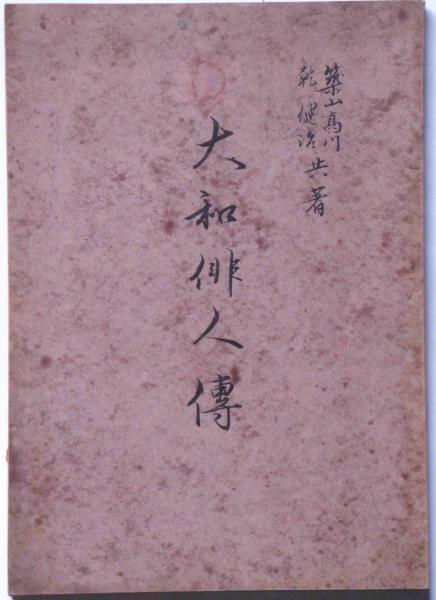 築山髙川
乾健治
共著
大和俳人傳